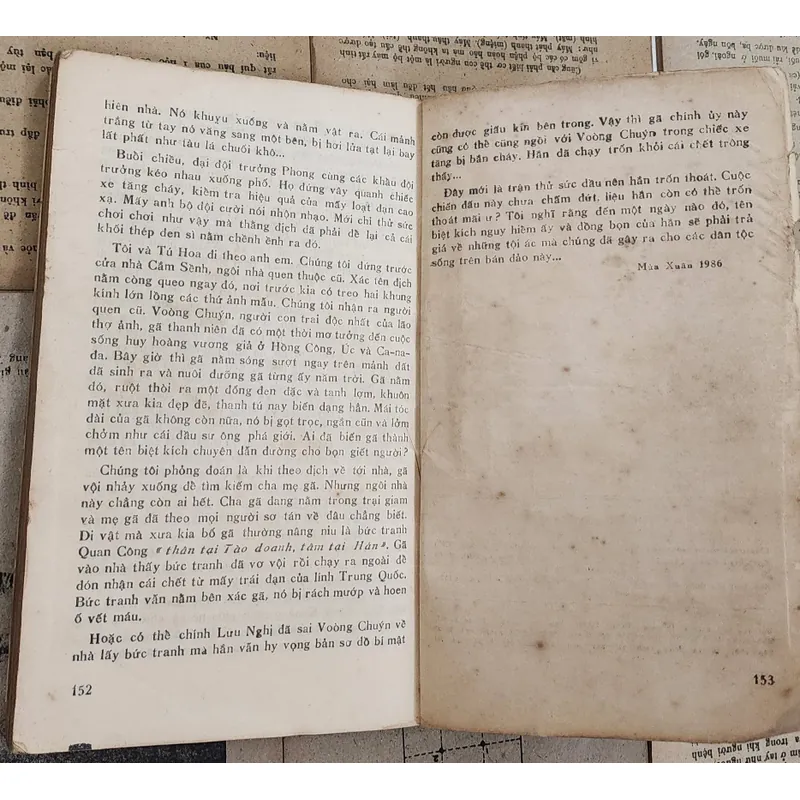 hiên nhà. Nó khuỵu xuống và nằm vật ra. Cái mảnh
trắng từ tay nó văng sang một bên, bị hơi lửa tạt lại bay
lất phất như tàu lá chuối khô...
Buổi chiều, đại đội trưởng Phong cùng các khẩu đội
trưởng kéo nhau xuống phố. Họ đứng vây quanh chiếc
xe tăng cháy, kiểm tra hiệu quả của mấy loạt đạn cao
xạ. Mấy anh bộ đội cười nói nhộn nhạo. Mới chỉ thử sức
chơi chơi như vậy mà thằng địch đã phải để lại cả cái
khối thép đen sì nằm chềnh ềnh ra đó.
Tôi và Tú Hoa đi theo anh em. Chúng tôi dừng trước
cửa nhà Cắm Sềnh, ngôi nhà quen thuộc cũ. Xác tên địch
nằm còng queo ngay đó, nơi trước kia có treo hai khung
kính lớn lồng các thứ ảnh mẫu. Chúng tôi nhận ra người
quen cũ. Voòng Chuýn, người con trai độc nhất của lão
thợ ảnh, gã thanh niên đã có một thời mơ tưởng đến cuộc
sống huy hoàng vương giả ở Hồng Công, Úc và Ca-na-
đa. Bây giờ thì gã nằm sóng sượt ngay trên mảnh đất
đã sinh ra và nuôi dưỡng gã từng ấy năm trời. Gã nằm
đó, ruột thòi ra một đống đen đặc và tanh lợm, khuôn
mặt xưa kia đẹp đẽ, thanh tú nay biến dạng hẳn. Mái tóc
dài của gã không còn nữa, nó bị gọt trọc, ngắn cũn và lởm
chởm như cái đầu sư ông phá giới. Ai đã biến gã thành
một tên biệt kích chuyên dẫn đường cho bọn giết người?
Chúng tôi phỏng đoán là khi theo địch về tới nhà, gã
vội nhảy xuống để tìm kiếm cha mẹ gã. Nhưng ngôi nhà
này chẳng còn ai hết. Cha gã đang nằm trong trại giam
và mẹ gã đã theo mọi người sơ tán về đâu chẳng biết.
Di vật mà xưa kia bố gã thường nâng niu là bức tranh
Quan Công «thân tại Tào doanh, tâm tại Hán». Gã
vào nhà thấy bức tranh đã vơ vội rồi chạy ra ngoài để
đón nhận cái chết từ mấy trái đạn của lính Trung Quốc.
Bức tranh vẫn nằm bên xác gã, nó bị rách mướp và hoen
ố vết máu.
Hoặc có thể chính Lưu Nghị đã sai Voòng Chuýn về
nhà lấy bức tranh mà hắn vẫn hy vọng bản sơ đồ bí mật
152
còn được giấu kín bên trong. Vậy thì gã chính ủy này
cũng có thể cùng ngồi với Voòng Chuýn trong chiếc xe
tăng bị bắn cháy. Hắn đã chạy trốn khỏi cái chết trông
thấy...
Đây mới là trận thử sức đầu nên hắn trốn thoát. Cuộc
chiến đấu này chưa chấm dứt, liệu hắn còn có thể trốn
thoát mãi ư? Tôi nghĩ rằng đến một ngày nào đó, tên
biệt kích nguy hiểm ấy và đồng bọn của hắn sẽ phải trả
giá về những tội ác mà chúng đã gây ra cho các dân tộc
sống trên bán đảo này...
Mùa Xuân 1986
153